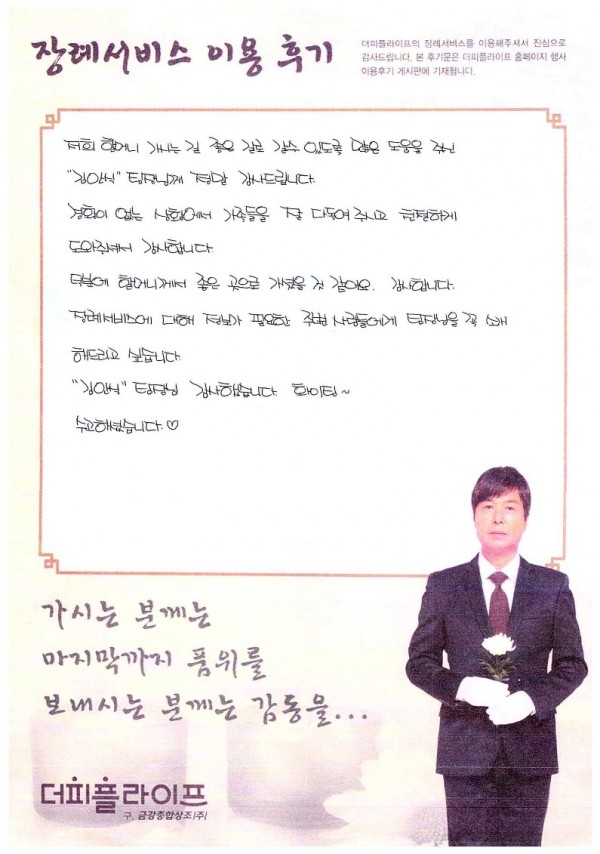 장례서비스 이용 후기
더피플라이프의 장례서비스를 이용해주셔서 진심으로
감사드립니다. 본 후기문은 더피플라이프 홈페이지 행사
이용후기 게시판에 기재됩니다.
저희 할머니 가시는 길 좋은 길로 갈수 있도록 많은 도움을 주신
"김안식" 팀장님께 정말 감사드립니다.
경황이 없는 상황에서 가족들을 잘 다독여주시고 친절하게
도와주셔서 감사합니다.
덕분에 할머니께서 좋은 곳으로 가셨을 것 같아요. 감사합니다.
장례서비스에 대해 정보가 필요한 주변 사람들에게 팀장님을 꼭 소개
해드리고 싶습니다
"김안식" 팀장님 감사했습니다. 화이팅~
수고하셨습니다.♡
가시는 분께는
마지막까지 품위를
보내시는 분께는 감동을...
더피플라이프
구. 금강종합상조(주)